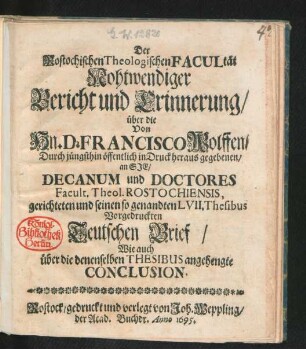 Der
Rostochischen Theologischen FACULtät
Nohtwendiger
Bericht und Erinnerung/
über die
Von
Hn. D. FRANCISCO Wolffen/
Durch jüngsthin öffentlich in Druck heraus gegebenen/
an SIE/
DECANUM und DOCTORES
Facult. Theol. ROSTOCHIENSIS,
gerichteten und seinen so genandten LVII, Thesibus
Vorgedruckten
Teutschen Brief/
Wie auch
über die denenselben THESIBUS angehengte
CONCLUSION.
Königl.
Bibliothek
Berlin
Rostock/ gedruckt und verlegt von Joh. Weppling/
der Acad. Buchdr. Anno 1695.